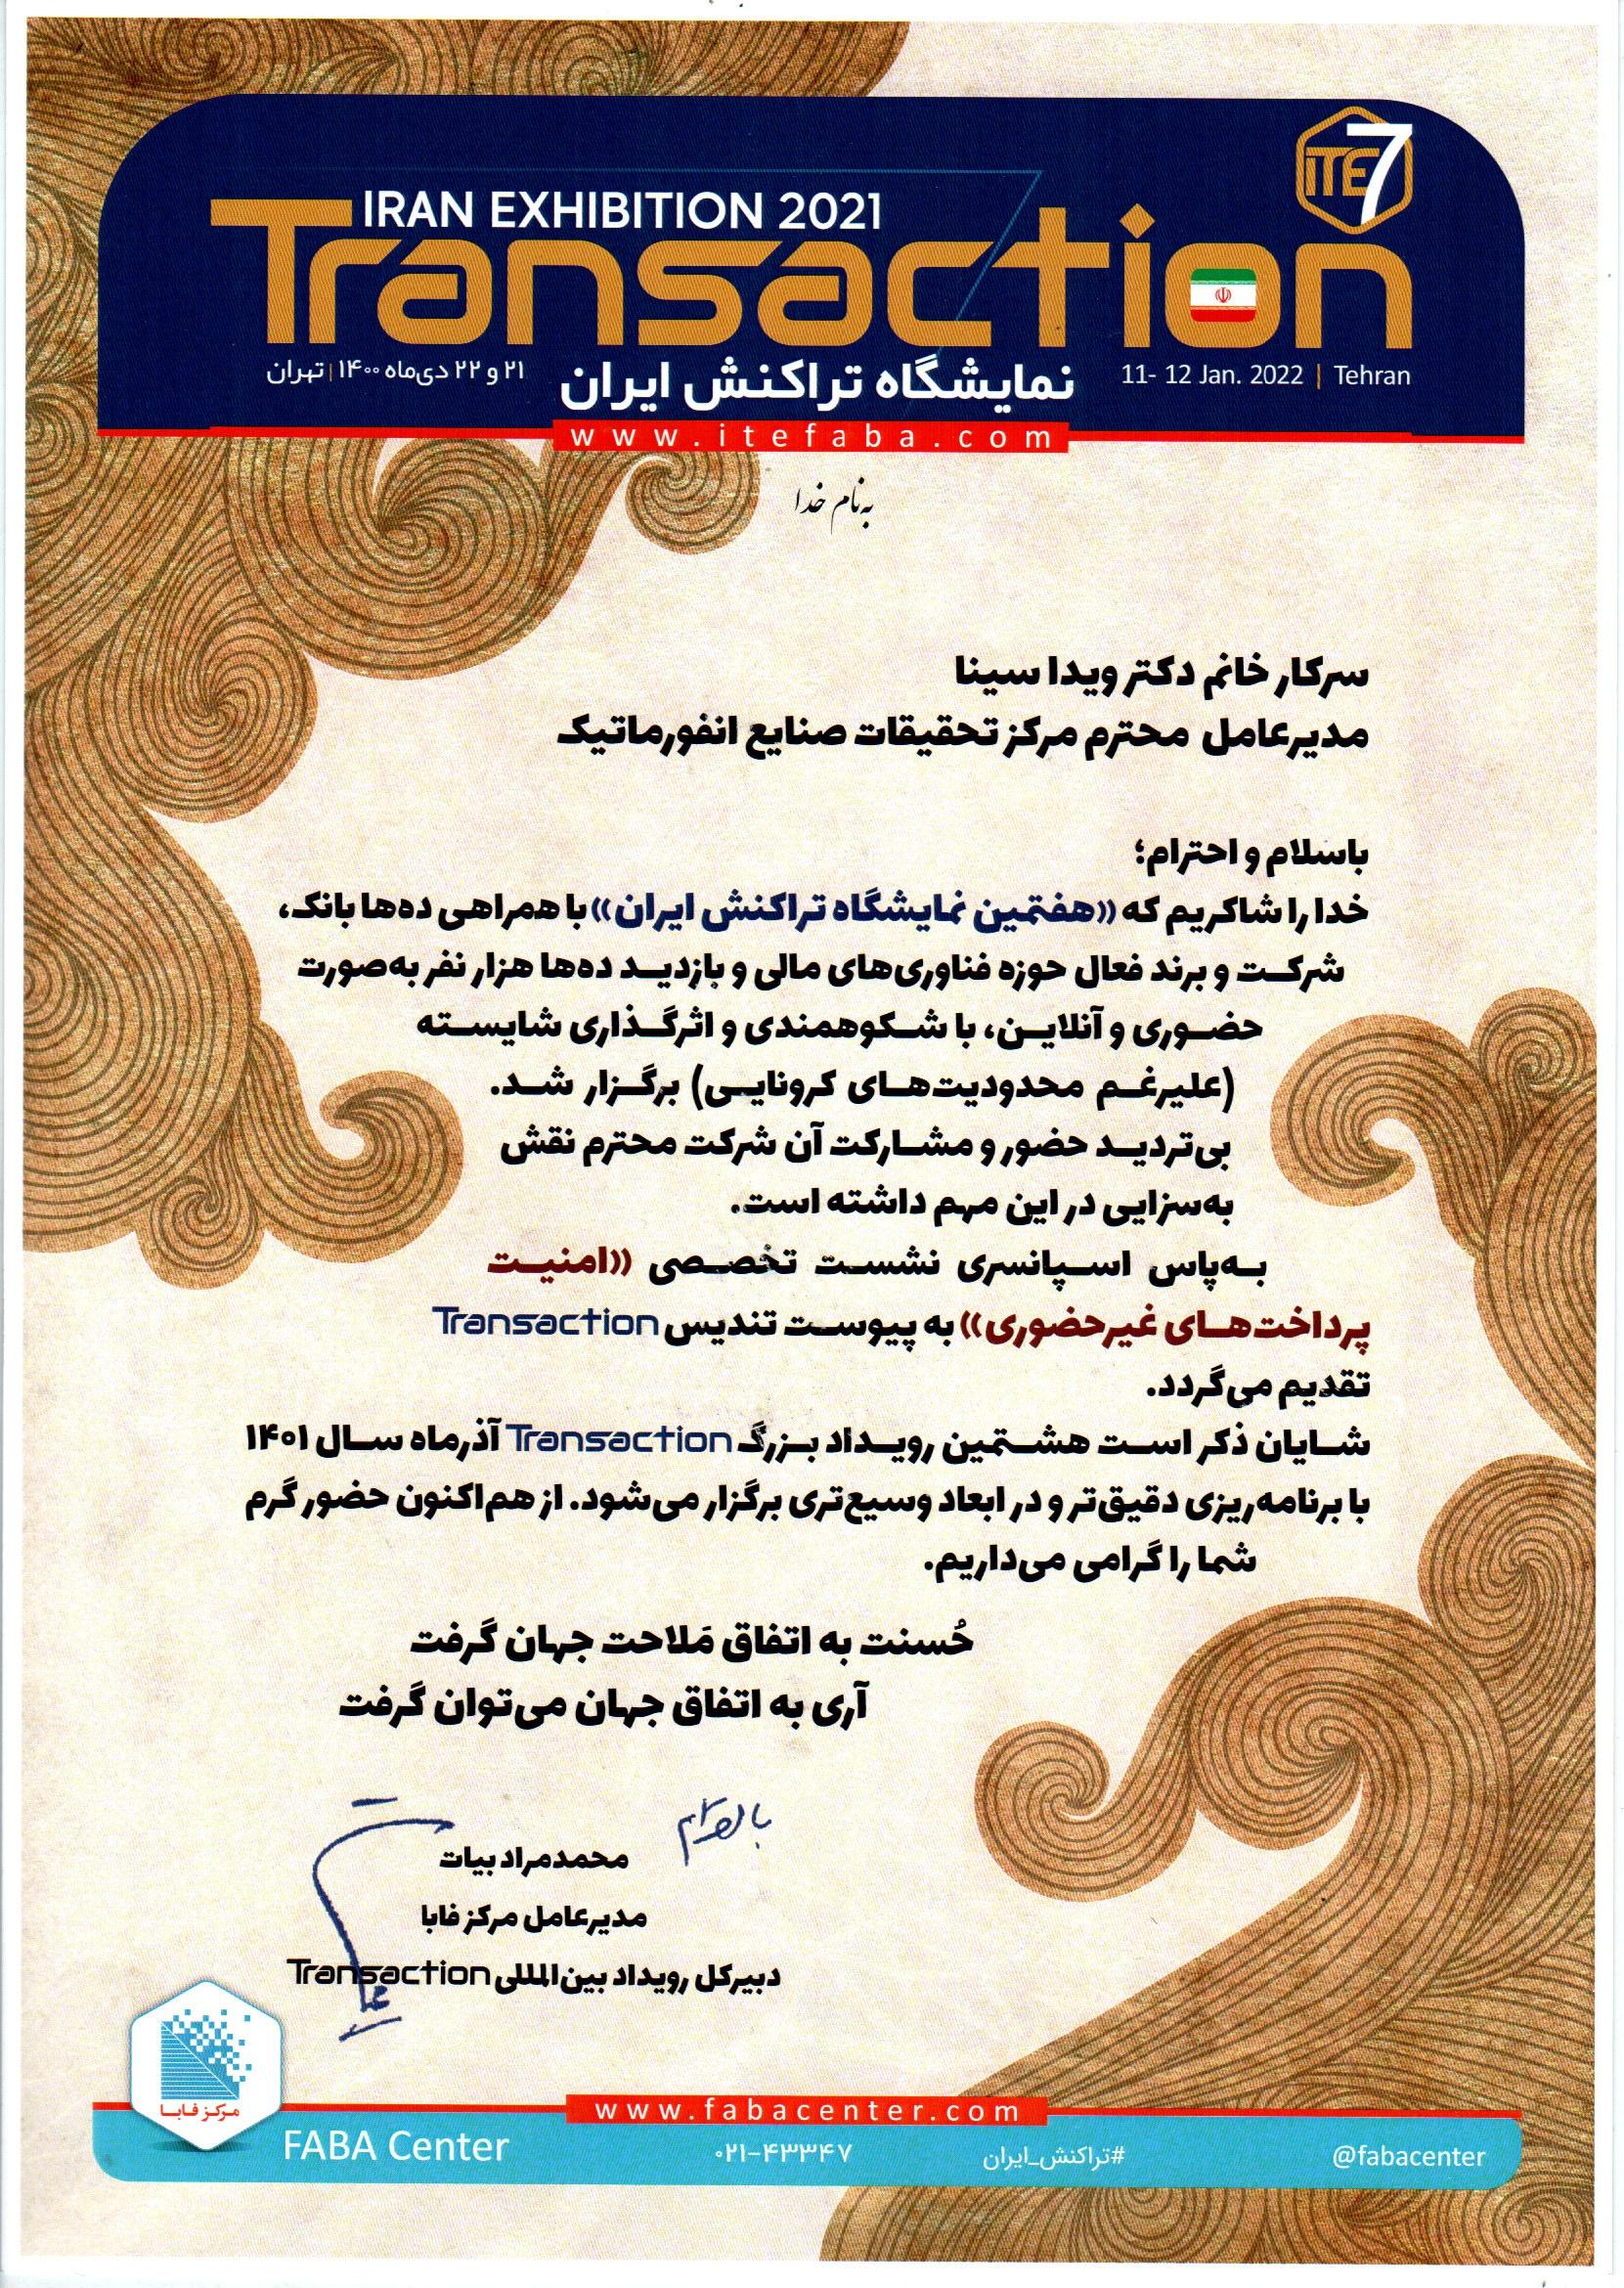 ITE 7
IRAN EXHIBITION 2021
Transaction
۲۱ و ۲۲ دی‌ماه ۱۴۰۰ | تهران
نمایشگاه تراکنش ایران
11- 12 Jan. 2022 | Tehran
www.itefaba.com
به‌نام خدا
سرکار خانم دکتر ویدا سینا
مدیرعامل محترم مرکز تحقیقات صنایع انفورماتیک
باسلام و احترام؛
خدا را شاکریم که «هفتمین نمایشگاه تراکنش ایران» با همراهی ده‌ها بانک،
شرکت و برند فعال حوزه فناوری‌های مالی و بازدید ده‌ها هزار نفر به‌صورت
حضوری و آنلاین، با شکوهمندی و اثرگذاری شایسته
(علیرغم محدودیت‌های کرونایی) برگزار شد.
بی‌تردید حضور و مشارکت آن شرکت محترم نقش
به‌سزایی در این مهم داشته است.
به‌پاس اسپانسری نشست تخصصی «امنیت
پرداخت‌های غیرحضوری» به پیوست تندیس Transaction
تقدیم می‌گردد.
شایان ذکر است هشتمین رویداد بزرگ Transaction آذرماه سال ۱۴۰۱
با برنامه‌ریزی دقیق‌تر و در ابعاد وسیع‌تری برگزار می‌شود. از هم‌اکنون حضور گرم
شما را گرامی می‌داریم.
حُسنت به اتفاق مَلاحت جهان گرفت
آری به اتفاق جهان می‌توان گرفت
با احترام
محمدمراد بیات
مدیرعامل مرکز فابا
دبیرکل رویداد بین‌المللی Transaction
مرکز فابا
www.fabacenter.com
FABA Center
۰۲۱-۴۳۳۴۷
#تراکنش_ایران
@fabacenter